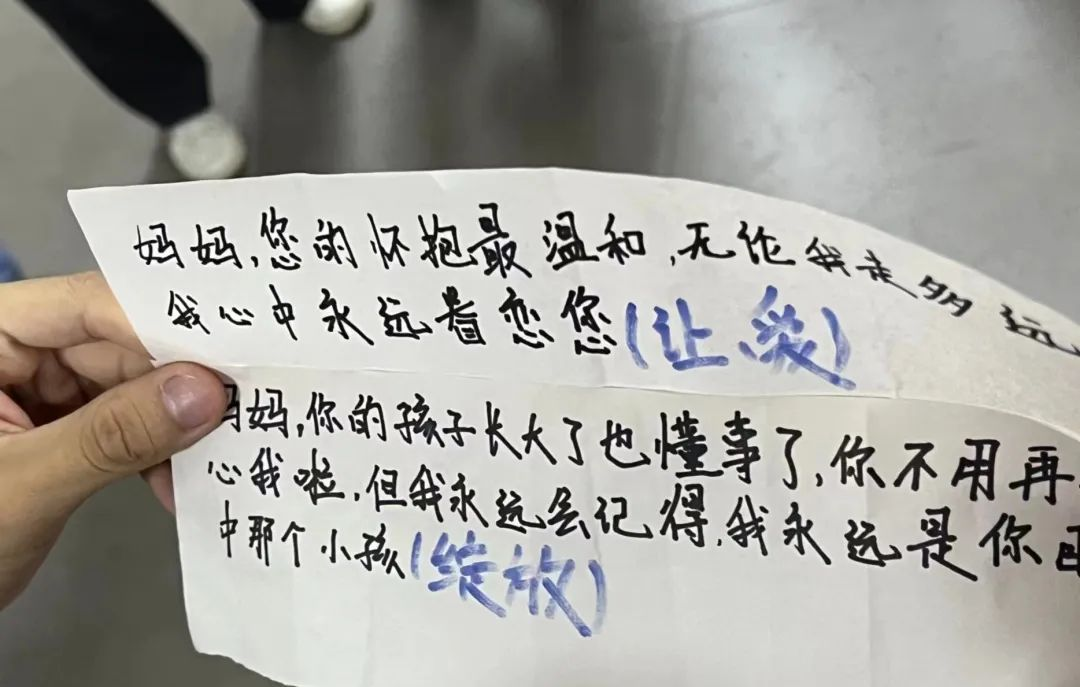 妈妈,您的怀抱最温和,无论我走多远,
我心中永远眷恋您(让爱)
妈妈,你的孩子长大了也懂事了,你不用再
心我啦,但我永远会记得,我永远是你
中那个小孩(绽放)